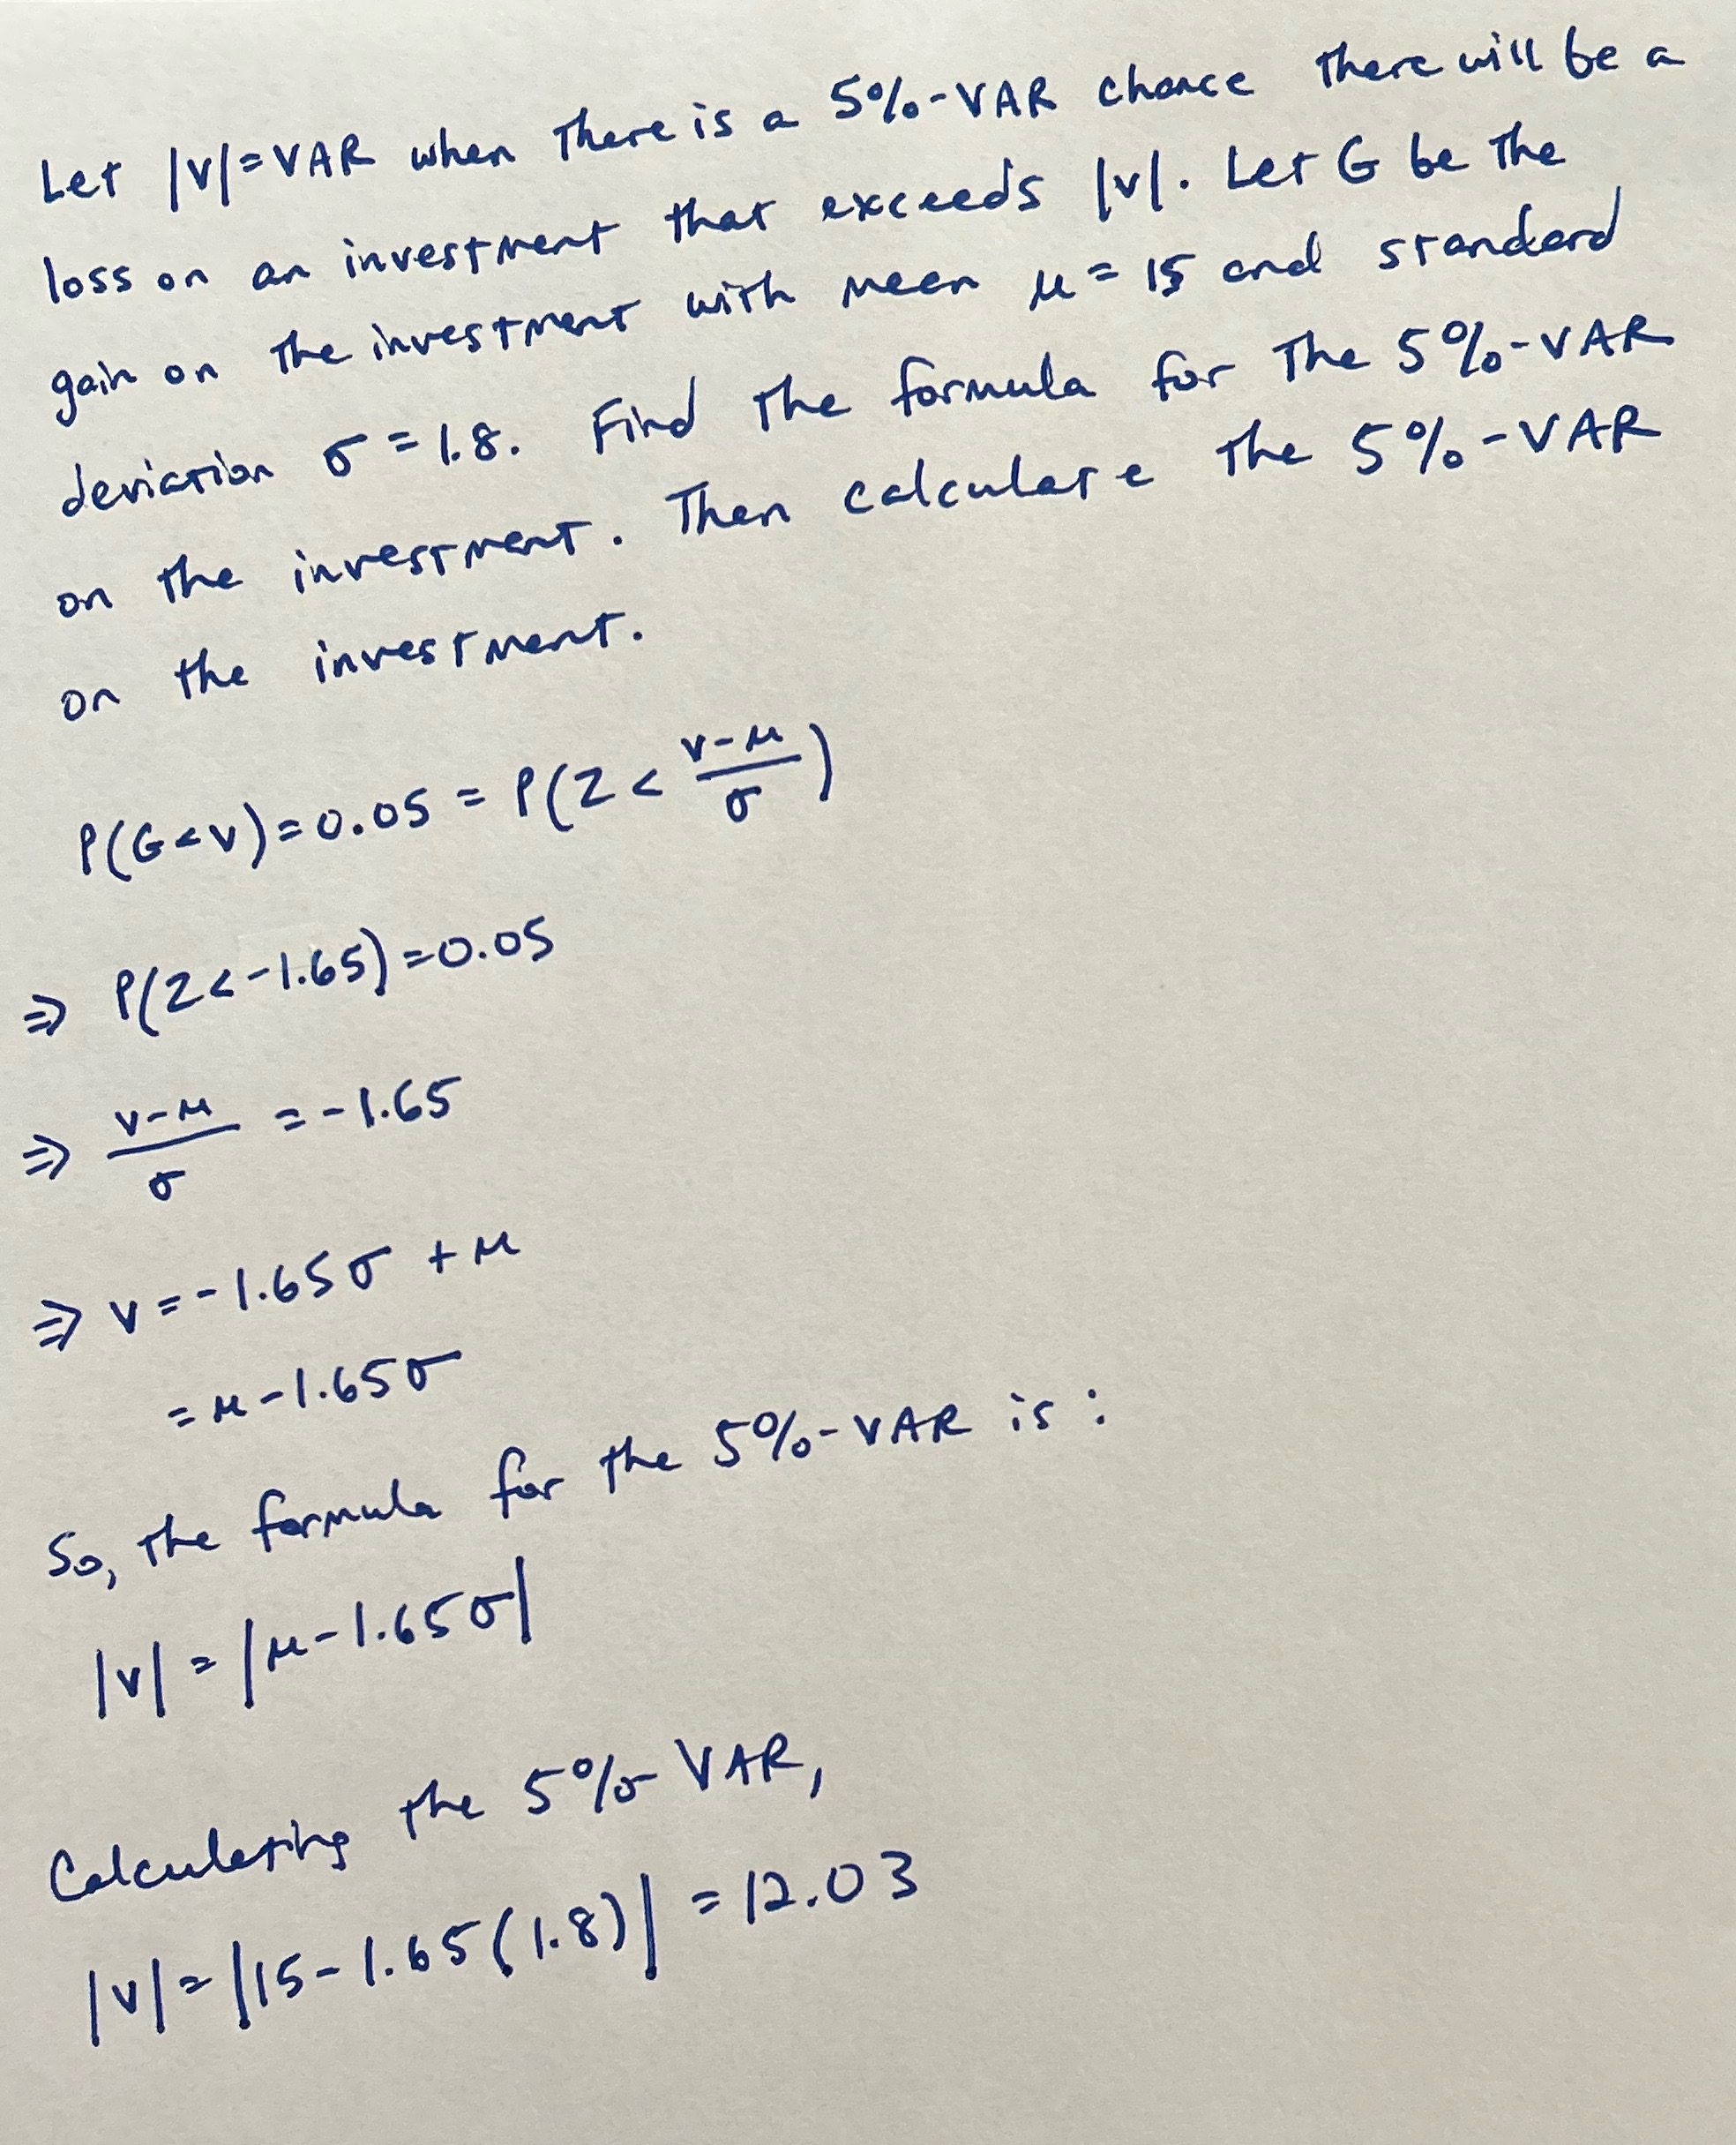 Let |v|=VAR when there is a 5%-VAR chance there will be a
loss on an investment that exceeds |v|. Let G be the
gain on the investment with mean μ = 15 and standard
deviation σ = 1.8. Find the formula for the 5%-VAR
on the investment. Then calculate the 5%-VAR
on the investment.
P(G<v)=0.05 = P(Z < (v-μ)/σ)
⇒ P(Z<-1.65)=0.05
⇒ (v-μ)/σ = -1.65
⇒ v = -1.65σ + μ
= μ-1.65σ
So, the formula for the 5%-VAR is:
|v| = |μ-1.65σ|
Calculating the 5% VAR,
|v| = |15-1.65(1.8)| = 12.03